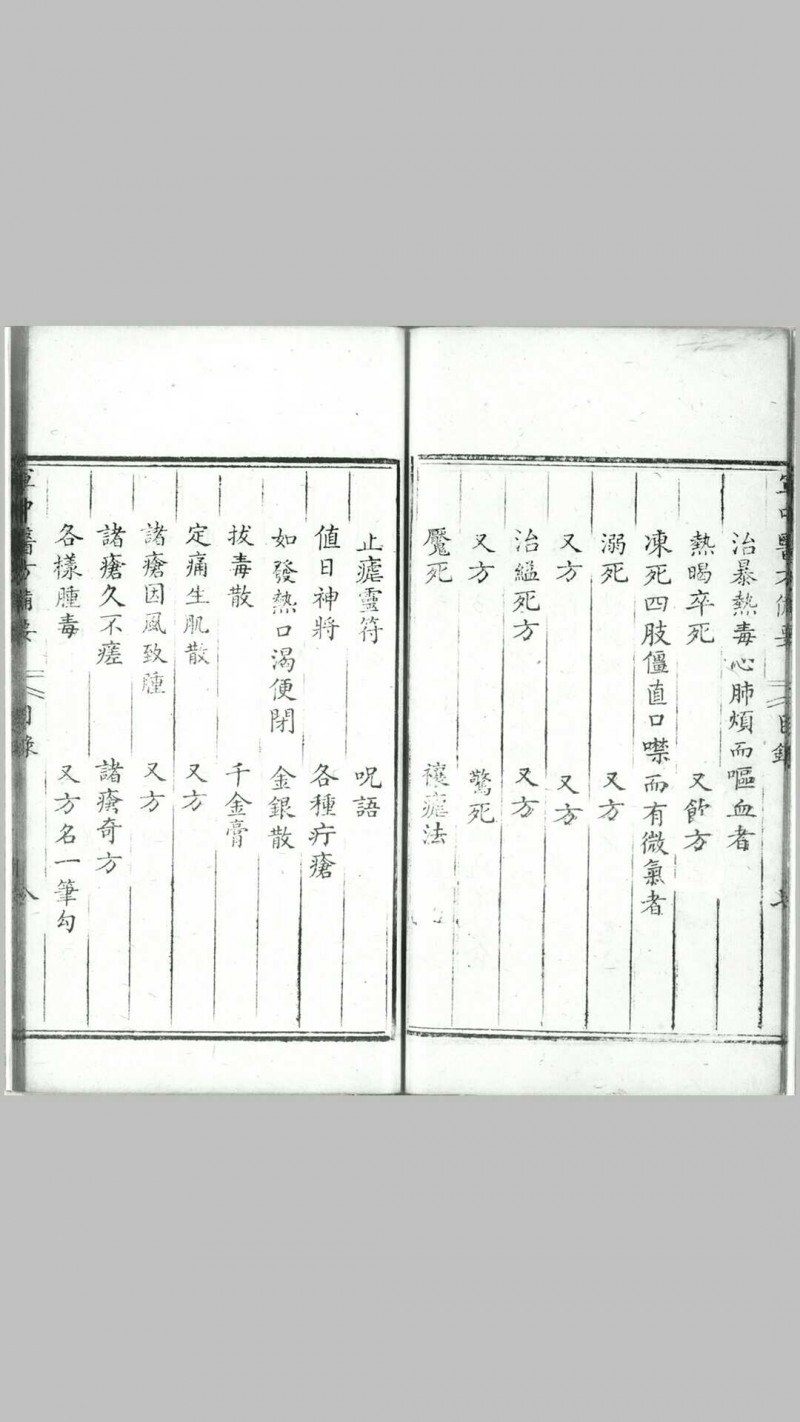 治暴熱毒心肺煩而嘔血者
熱暍卒死　又飲方
凍死四肢僵直口噤而有微氣者
溺死　又方
又方　又方
治縊死方　又方
又方　驚死
魘死　禳瘧法
止瘧靈符　呪語
值日神將　各種疔瘡
如發熱口渴便閉　金銀散
拔毒散　千金膏
定痛生肌散　又方
諸瘡因風致腫　又方
諸瘡久不瘥　諸瘡奇方
各樣腫毒　又方名一筆勾
軍中醫方備要　目錄　八